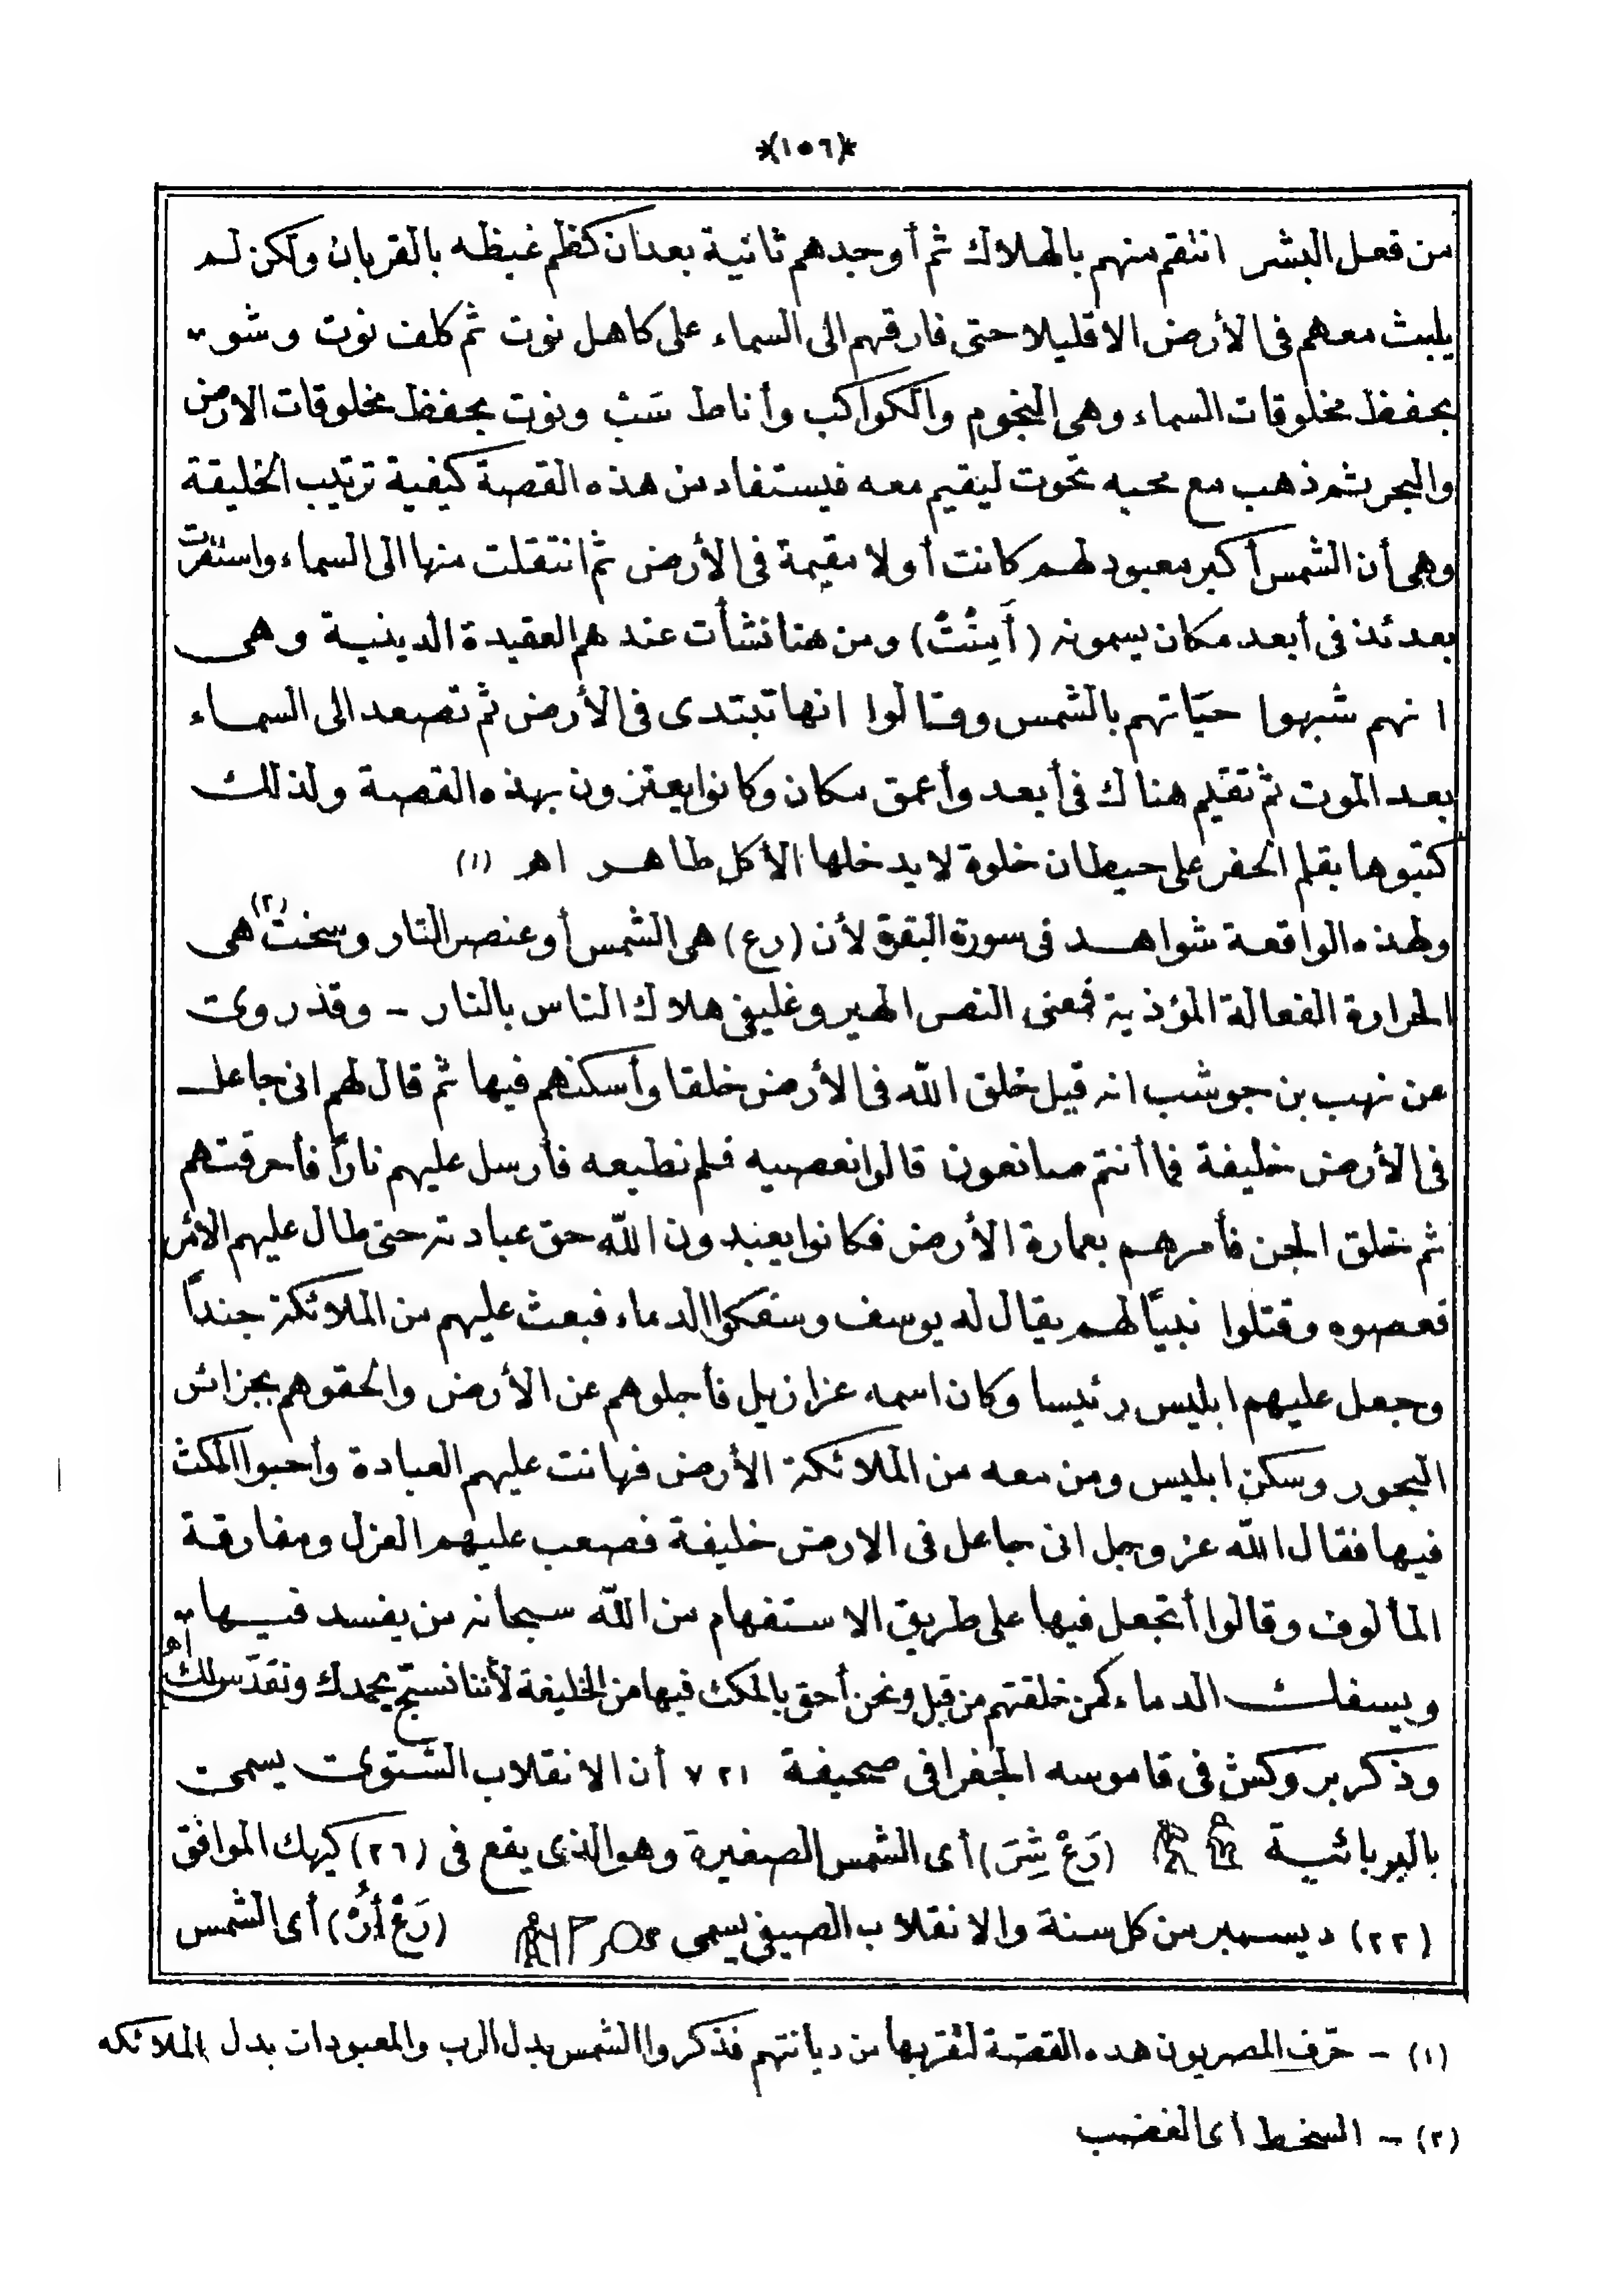 *(١٥٦)*
من فعل البشر انتقم منهم بالهلاك ثم أوجدهم ثانية بعدان كظم غيظه بالقربان ولكن لم
يلبث معهم فى الأرض الاقليلا حتى فارقهم الى السماء على كاهل نوت ثم كلف نوت وشو
بحفظ مخلوقات السماء وهى النجوم والكواكب وأناط سَبْ ونوت بحفظ مخلوقات الارض
والبحر ثم ذهب مع محبه تحوت ليقيم معه فيستفاد من هذه القصة كيفية ترتيب الخليقة
وهى أن الشمس أكبر معبود لهم كانت أولا مقيمة فى الأرض ثم انتقلت منها الى السماء واستقرت
بعدئذ فى أبعد مكان يسمونه (أَمِنْتْ) ومن هنا نشأت عندهم العقيدة الدينية وهى
انهم شبهوا حيَاتهم بالشمس وقالوا انها تبتدى فى الأرض ثم تصعد الى السماء
بعد الموت ثم تقيم هناك فى أبعد وأعمق مكان وكانوا يعتزون بهذه القصة ولذلك
كتبوها بقلم الحفر على حيطان خلوة لا يدخلها الا كل طاهر اهـ (١)
ولهذه الواقعة شواهد فى سورة البقرة لأن (رع) هى الشمس أو عنصر النار وسخت (٢) هى
الحرارة الفعالة المؤذية فمعنى النص الهيروغليفى هلاك الناس بالنار - وقد روى
عن نهب بن جوشب انه قيل خلق اللّه فى الأرض خلقا وأسكنهم فيها ثم قال لهم انى جاعل
فى الأرض خليفة فما أنتم صانعون قالوا نعصيه فلم نطيعه فأرسل عليهم ناراً فأحرقتهم
ثم خلق الجن فأمرهم بعمارة الأرض فكانوا يعبدون اللّه حق عبادته حتى طال عليهم الأمر
فعصوه وقتلوا نبيًا لهم يقال له يوسف وسفكوا الدماء فبعث عليهم من الملائكة جنداً
وجعل عليهم ابليس رئيسا وكان اسمه عزازيل فأجلوهم عن الأرض والحقوهم بجزائر
البحور وسكن ابليس ومن معه من الملائكة الأرض فهانت عليهم العبادة وأحبوا المكث
فيها فقال اللّه عز وجل انى جاعل فى الارض خليفة فصعب عليهم العزل ومفارقة
المألوف وقالوا أتجعل فيها على طريق الاستفهام من اللّه سبحانه من يفسد فيها
ويسفك الدماء كمن خلقتهم من قبل ونحن أحق بالمكث فيها من الخليفة لأننا نسبّح بحمدك ونقدّس لك اهـ
وذكر بروكش فى قاموسه الجغرافى صحيفة ٧٢١ أن الانقلاب الشتوى يسمى
بالبربائية (رَعْ شِرَ) أى الشمس الصغيرة وهو الذى يقع فى (٢٦) كيهك الموافق
(٢٢) ديسمبر من كل سنة والانقلاب الصيفى يسمى (رَعْ أُرْ) أى الشمس
(١) - حرّف المصريون هده القصّة لتقريبها من ديانتهم فذكروا الشمس بدل الرب والمعبودات بدل الملائكه
(٢) - السخط اى الغضب